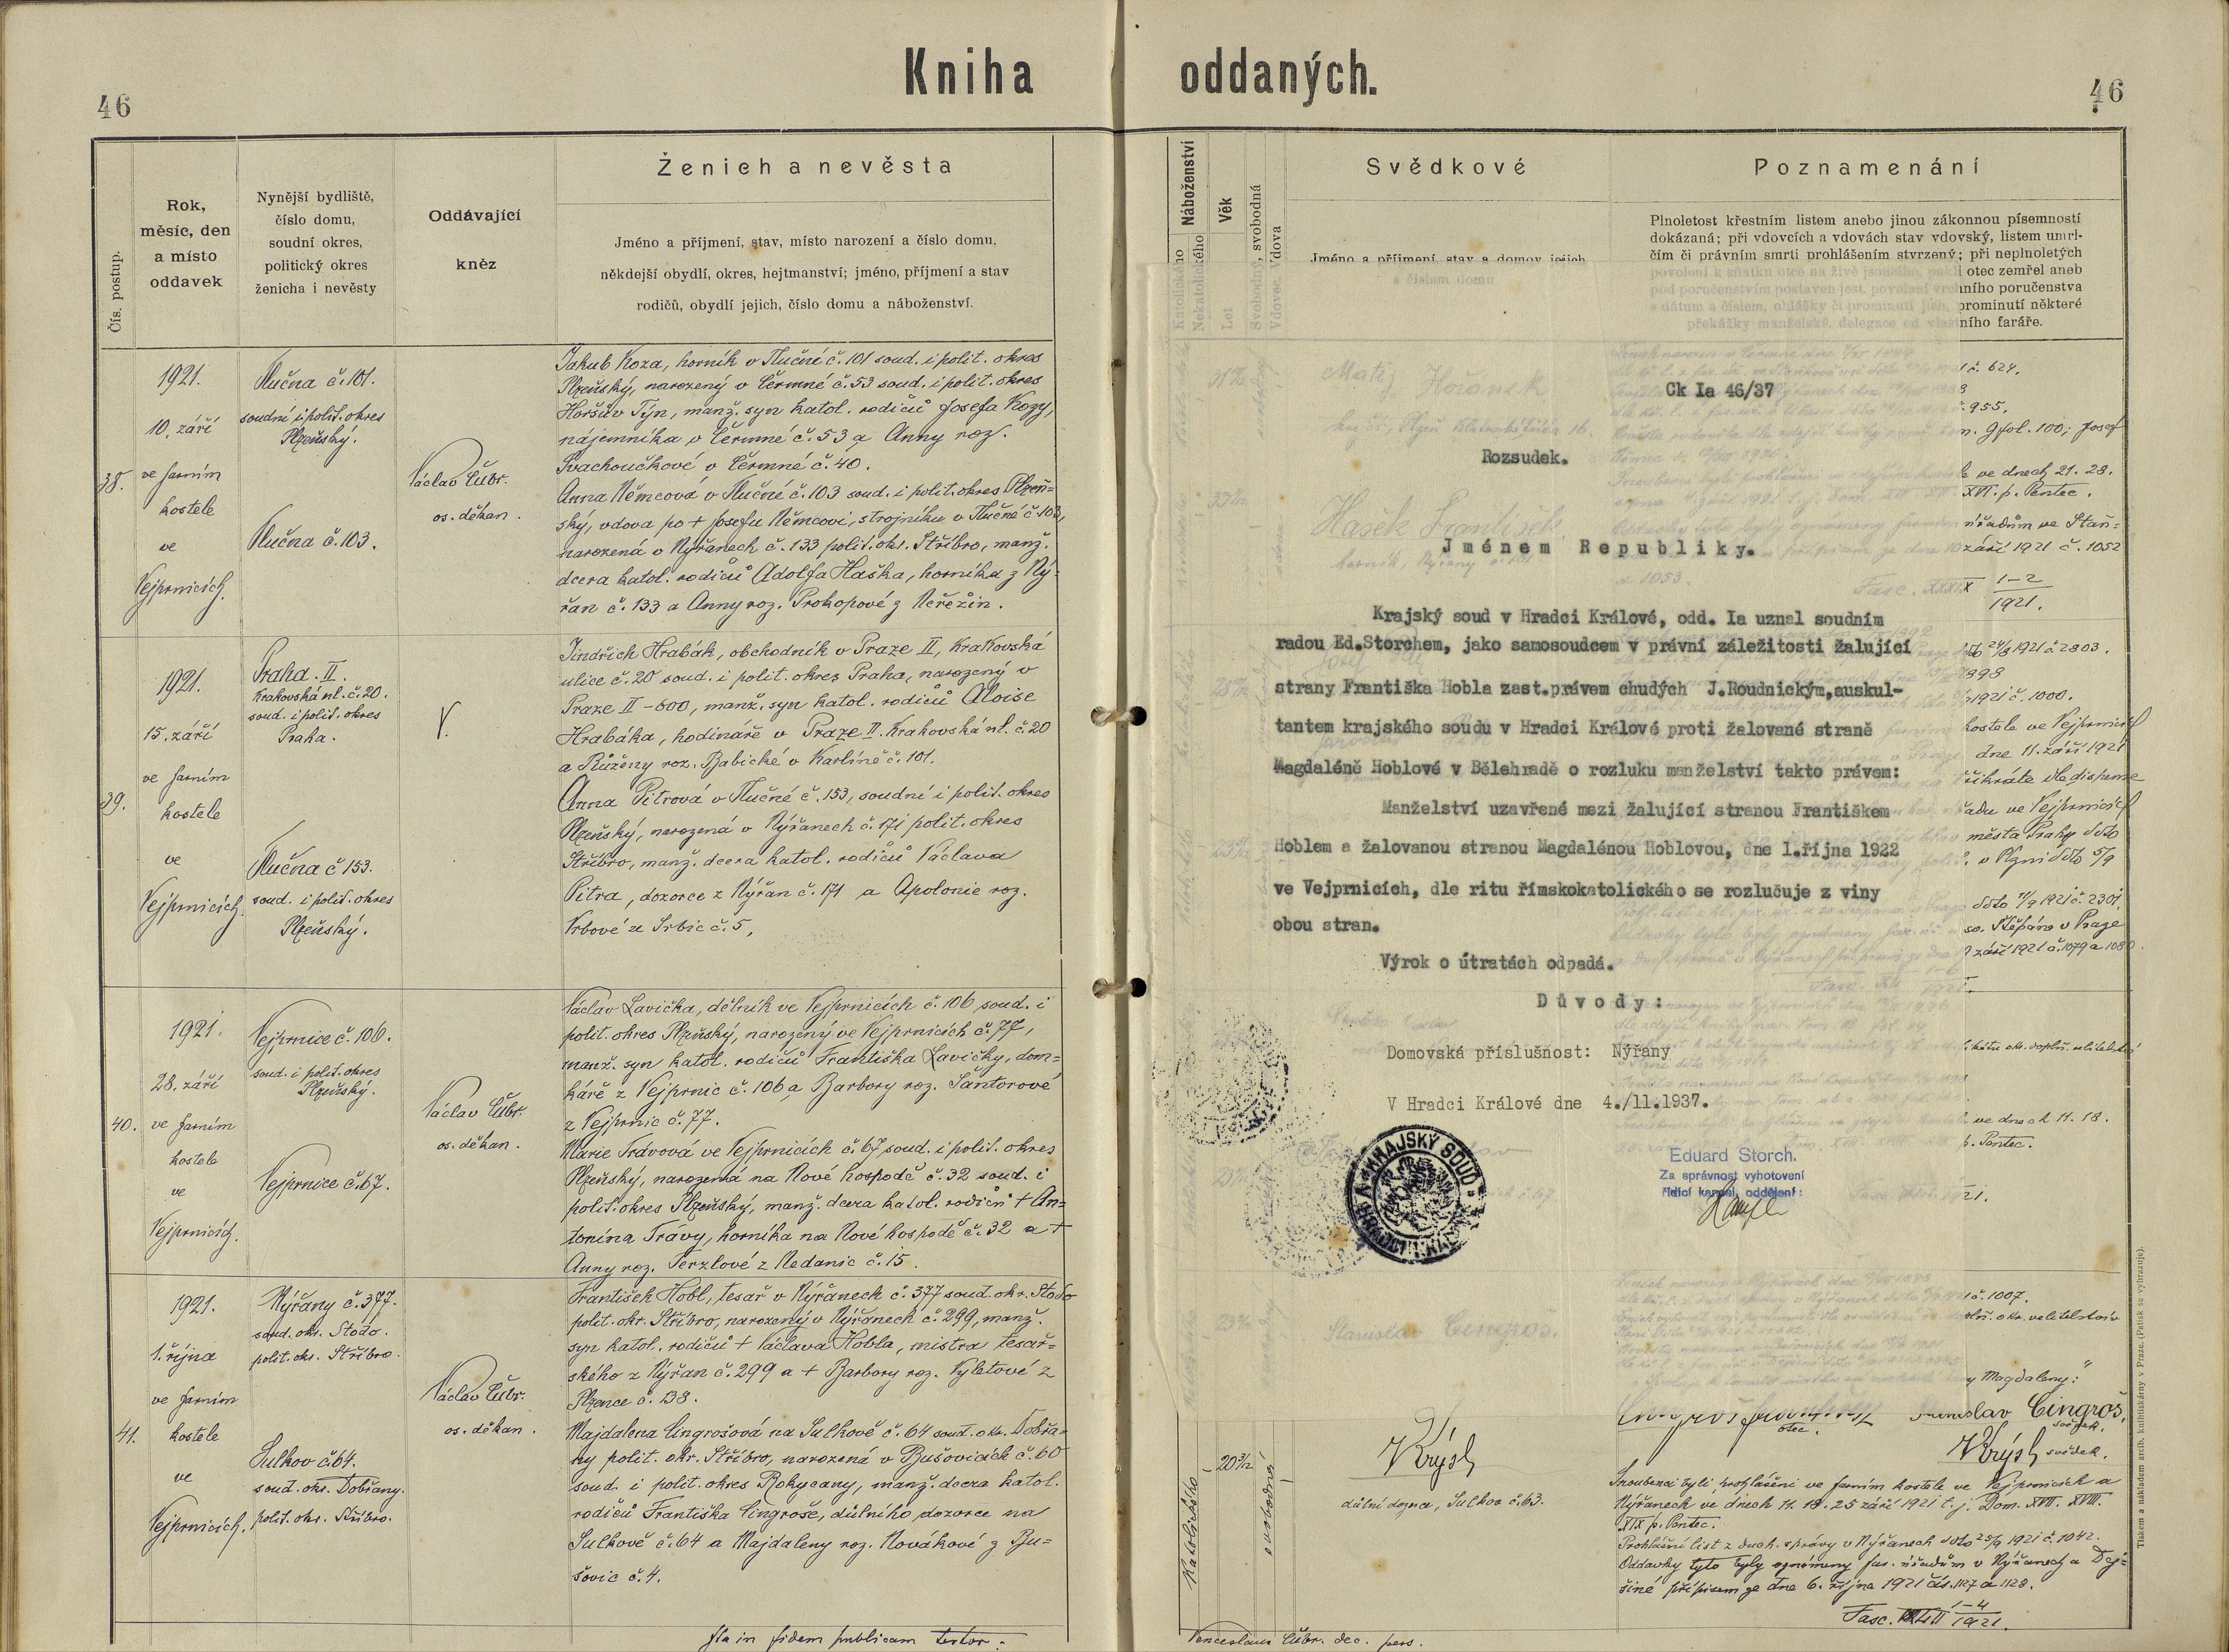 Kniha oddaných.
46
46
Čís. postup.
Rok,
měsíc, den
a místo
oddavek
Nynější bydliště,
číslo domu,
soudní okres,
politický okres
ženicha i nevěsty
Oddávající
kněz
Ženich a nevěsta
Jméno a příjmení, stav, místo narození a číslo domu,
někdejší obydlí, okres, hejtmanství; jméno, příjmení a stav
rodičů, obydlí jejich, číslo domu a náboženství.
38.
1921.
10. září
ve farním
kostele
ve
Vejprnicích.
Tlučna č. 101.
soudní i polit. okres
Plzeňský.
Tlučna č. 103.
Václav Čubr.
os. děkan.
Jakub Koza, horník v Tlučné č. 101 soud. i polit. okres
Plzeňský, narozený v Čermné č. 53 soud. i polit. okres
Horšův Týn, manž. syn katol. rodičů Josefa Kozy,
nájemníka v Čermné č. 53 a Anny roz.
Svachoučkové v Čermné č. 40.
Anna Němcová v Tlučné č. 103 soud. i polit. okres Plzeň=
ský, vdova po + Josefu Němcovi, strojníku v Tlučné č 103,
narozená v Nýřanech č. 133 polit. okr. Stříbro, manž.
dcera katol. rodičů Adolfa Haška, horníka z Ný=
řan č. 133 a Anny roz. Prokopové z Neřežin.
39.
1921.
15. září
ve farním
kostele
ve
Vejprnicích.
Praha. II.
Krakovská ul. č. 20.
soud. i polit. okres
Praha.
Tlučna č 153.
soud. i polit. okres
Plzeňský.
V.
Jindřich Hrabák, obchodník v Praze II, Krakovská
ulice č. 20 soud. i polit. okres Praha, narozený v
Praze II - 600, manž. syn katol. rodičů Aloise
Hrabáka, hodináře v Praze II. Krakovská ul. č. 20
a Růženy roz. Babické v Karlíně č. 101.
Anna Pitrová v Tlučné č. 153, soudní i polit. okres
Plzeňský, narozená v Nýřanech č. 171 polit. okres
Stříbro, manž. dcera katol. rodičů Václava
Pitra, dozorce z Nýřan č. 171 a Apolonie roz.
Vrbové ze Srbic č. 5,
40.
1921.
28. září
ve farním
kostele
ve
Vejprnicích.
Vejprnice č. 106.
soud. i polit. okres
Plzeňský.
Vejprnice č. 67.
Václav Čubr.
os. děkan.
Václav Lavička, dělník ve Vejprnicích č. 106 soud. i
polit. okres Plzeňský, narozený ve Vejprnicích č. 77,
manž. syn katol. rodičů Františka Lavičky, dom=
káře z Vejprnic č. 106 a Barbory roz. Šantorové
z Vejprnic č. 77.
Marie Trávová ve Vejprnicích č. 67 soud. i polit. okres
Plzeňský, narozená na Nové hospodě č. 32 soud. i
polit. okres Plzeňský, manž. dcera katol. rodičů + An=
tonína Trávy, horníka na Nové hospodě č. 32 a +
Anny roz. Terzlové z Nedanic č. 15.
41.
1921.
1. října
ve farním
kostele
ve
Vejprnicích.
Nýřany č. 377.
soud. okr. Stodo.
polit. okr. Stříbro.
Sulkov č. 64.
soud. okr. Dobřany.
polit. okr. Stříbro.
Václav Čubr.
os. děkan.
František Hobl, tesař v Nýřanech č. 377 soud. okr. Stodo
polit. okr. Stříbro, narozený v Nýřanech č. 299, manž.
syn katol. rodičů + Václava Hobla, mistra tesař=
ského z Nýřan č. 299 a + Barbory roz. Vyletové z
Plzence č. 138.
Majdalena Cingrošová na Sulkově č. 64 soud. okr. Dobřa=
ny polit. okr. Stříbro, narozená v Bušovicích č. 60
soud. i polit. okres Rokycany, manž. dcera katol.
rodičů Františka Cingroše, důlního dozorce na
Sulkově č. 64 a Majdaleny roz. Novákové z Bu=
šovic č. 4.
Ita in fidem publicam testor:
Náboženství
Věk
Svědkové
Poznamenání
Jméno a příjmení, stav a domov jejich
Plnoletost křestním listem anebo jinou zákonnou písemností
dokázaná; při vdovcích a vdovách stav vdovský, listem umrl-
čím či právním smrti prohlášením stvrzený; při neplnoletých
i otec zemřel aneb
ního poručenstva
prominutí některé
ního faráře.
Ck Ia 46/37
Rozsudek.
Jménem Republiky.
Krajský soud v Hradci Králové, odd. Ia uznal soudním
radou Ed.Storchem, jako samosoudcem v právní záležitosti žalující
strany Františka Hobla zast.právem chudých J.Roudnickým,auskul-
tantem krajského soudu v Hradci Králové proti žalované straně
Magdaléně Hoblové v Bělehradě o rozluku manželství takto právem:
Manželství uzavřené mezi žalující stranou Františkem
Hoblem a žalovanou stranou Magdalénou Hoblovou, dne 1.října 1922
ve Vejprnicích, dle ritu římskokatolického se rozlučuje z viny
obou stran.
Výrok o útratách odpadá.
Důvody:
Domovská příslušnost: Nýřany
V Hradci Králové dne 4./11.1937.
KRAJSKÝ SOUD
Eduard Storch.
Za správnost vyhotovení
řídící kancel. oddělení:
č. 624.
č. 955.
n. 9 fol. 100; Josef
ve dnech 21. 28.
XVI. p. Pentec.
úřadům ve Staň=
září 1921 č. 1052
1-2
1921.
1921 č 2803.
1898
1921 č. 1000.
kostele ve Vejprnicích
dne 11. září 1921
města Prahy ddto
v Plzni ddto 5/9
1921 č. 2301.
sv. Štěpána v Praze
září 1921 č. 1079 a 1080.
ve dnech 11. 18.
p. Pentec.
č. 1007.
y Magdaleny:
otec.
Stanislav Cingroš,
svědek.
Krýsl svědek.
Katolického
20 3/12
svobodná
Krýsl
důlní dozorce, Sulkov č. 63.
Snoubenci byli prohlášeni ve farním kostele ve Vejprnicích a
Nýřanech ve dnech 11. 18. 25 září 1921 t. j. Dom. XVII. XVIII.
XIX p. Pentec.
Prohlášní list z duch. správy v Nýřanech ddto 25/9 1921 č. 1042.
Oddavky tyto byly oznámeny far. úřadům v Nýřanech a Dej=
šiné přípisem ze dne 6. října 1921 čís. 1127 a 1128.
Fasc. 1-4
1921.
Venceslaus Čubr. dec. pers.
Tiskem a nákladem arcib. knihtiskárny v Praze. (Patisk se vyhrazuje).